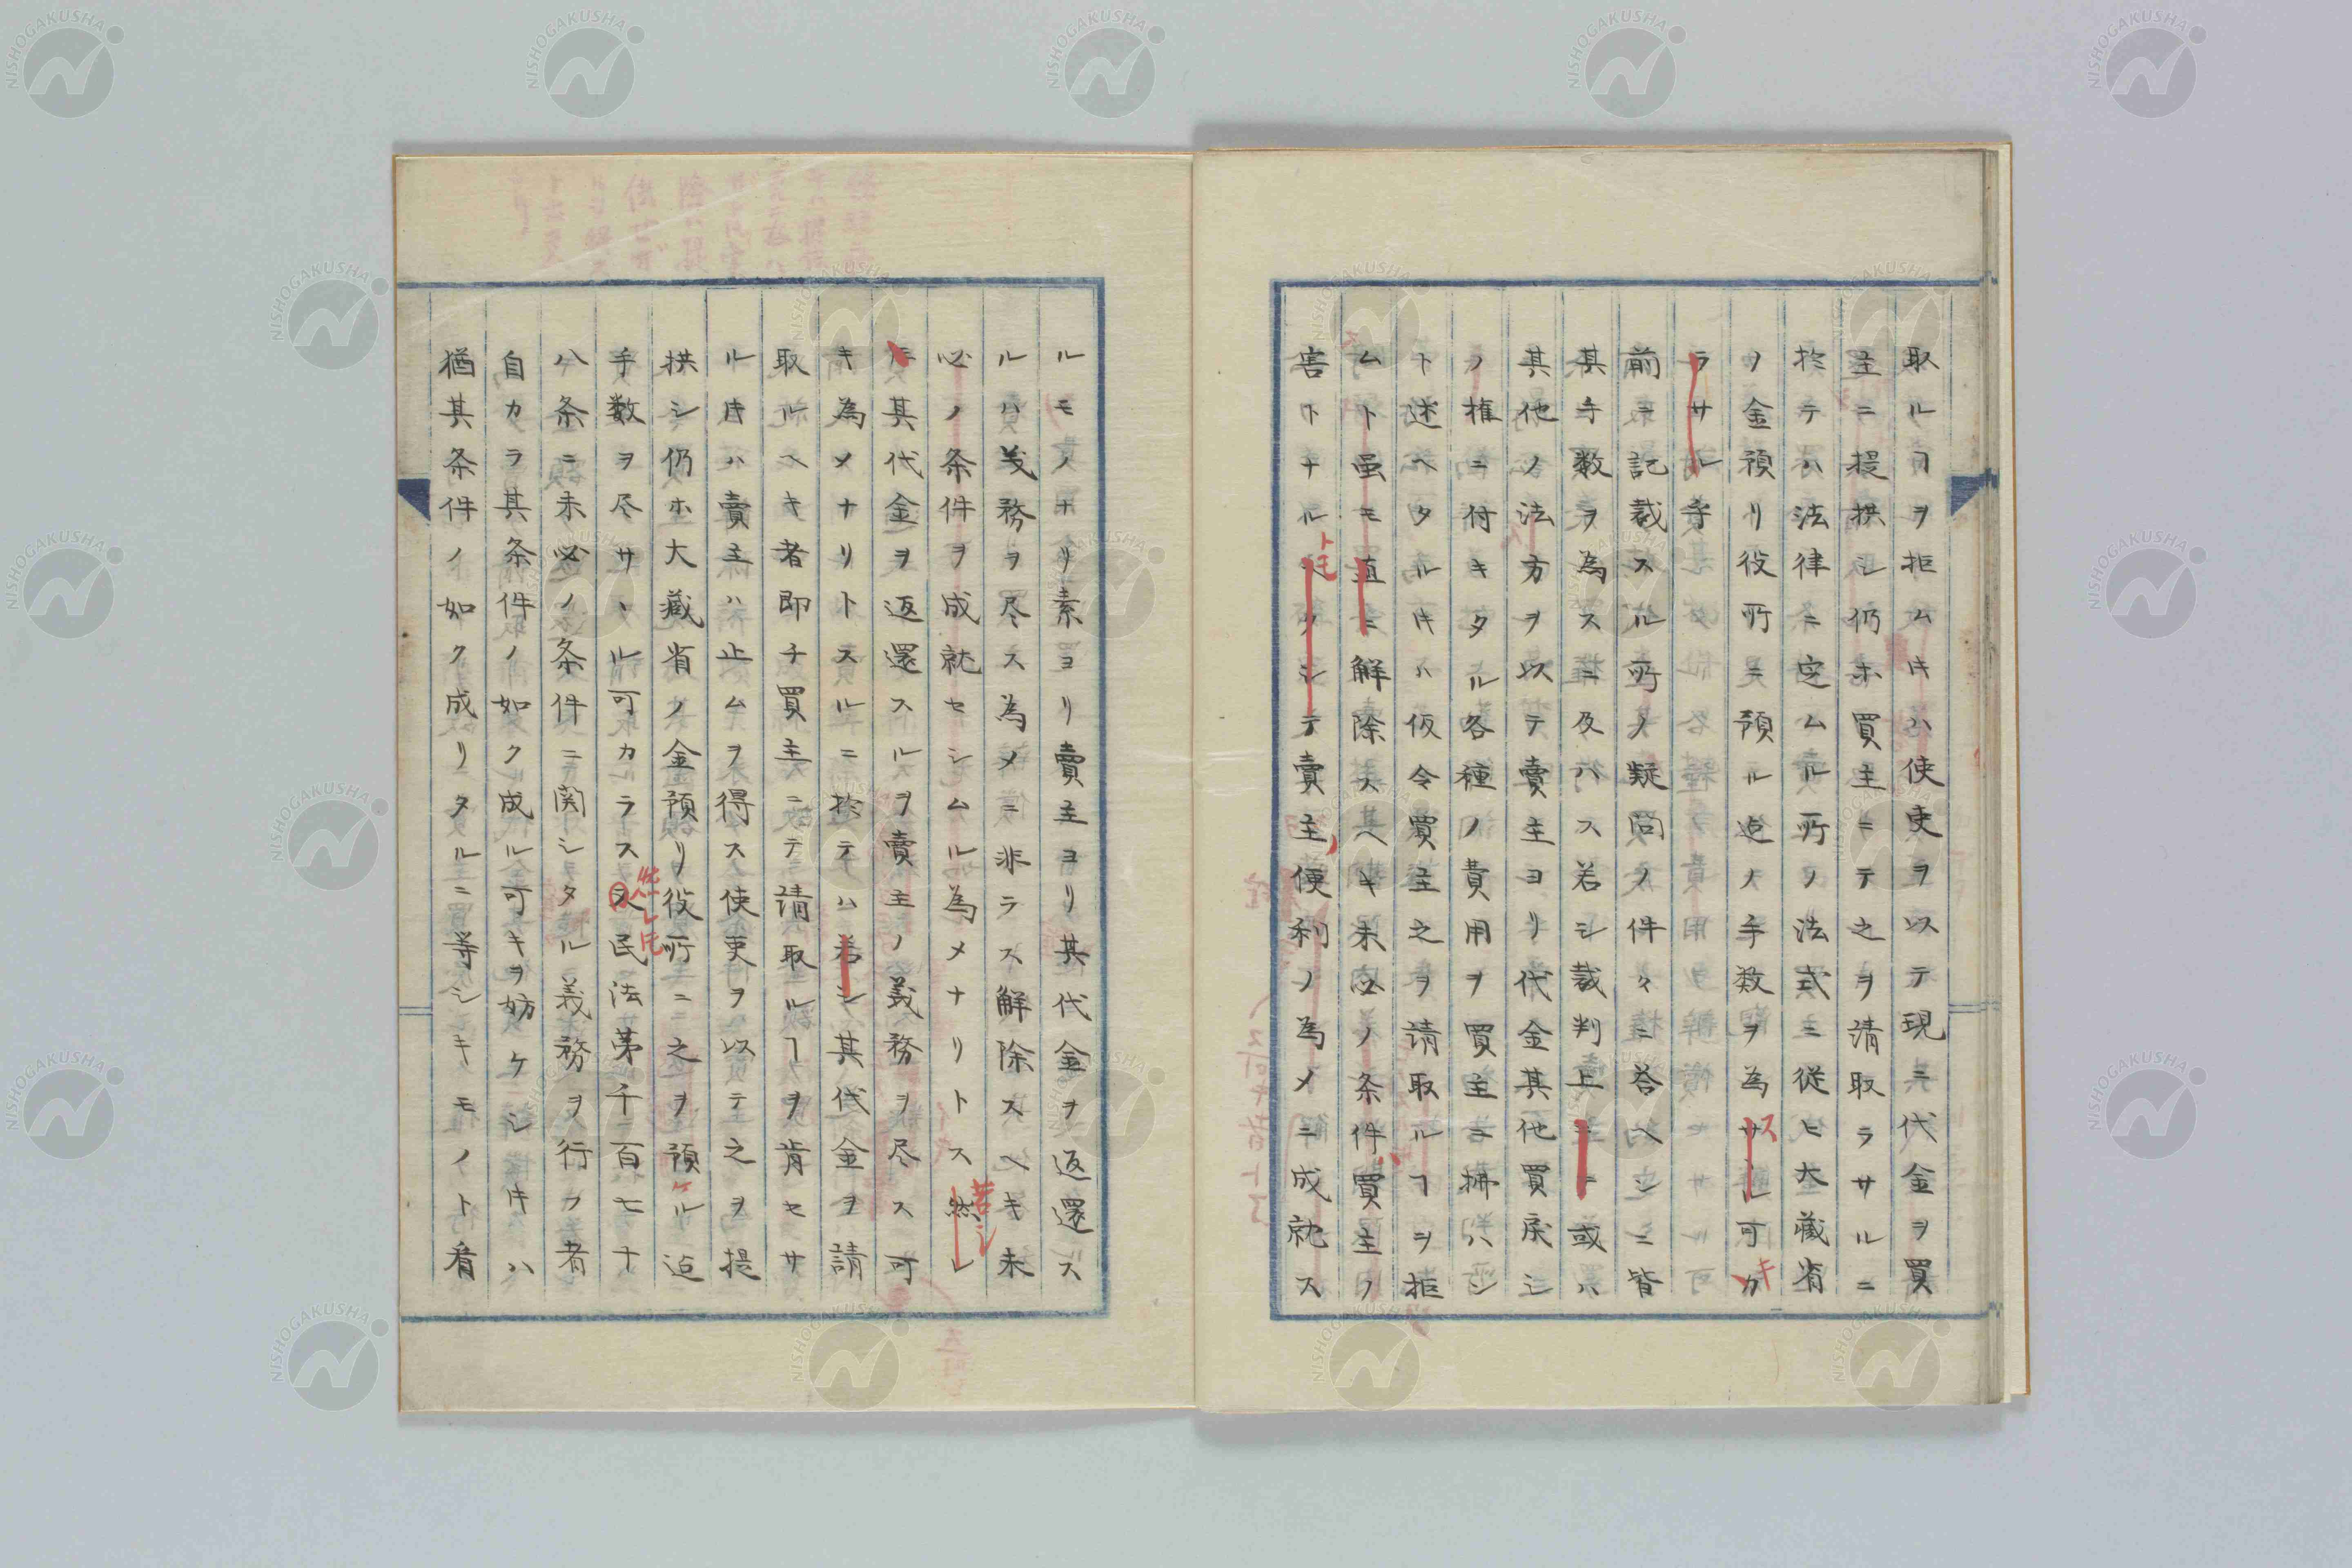 取ルヿヲ拒ムキハ使吏ヲ以テ現ニ代金ヲ買
主ニ提拱シ仍ホ買主ニテ之ヲ請取ラサルニ
於テハ法律ニ定ムル所ノ法式ニ従ヒ大藏省
ノ金預リ役所ニ預ル迠ノ手数ヲ為サヽル可カ
ス
キ
ラサル乎
前ニ記裁スル所ノ疑問ノ件々ニ荅ヘンニ皆
其手数ヲ為スニ及ハス若シ裁判上ニ
或ハ
其他ノ法方ヲ以テ賣主ヨリ代金其他買戻シ
ノ権ニ付キタル各種ノ費用ヲ買主ニ拂ハン
ト述ヘタルキハ仮令買主之ヲ請取ルヿヲ拒
ムト虽モ直ニ解除スヘキ未必ノ条件ハ買主ノ
害トナルト
モ
テ賣主、便利ノ為メニ成就ス
ルモノナリ素ヨリ賣主ヨリ其代金ヲ返還ス
ルハ義務ヲ尽ス為メニ非ラス解除スヘキ未
必ノ条件ヲ成就セシムル為メナリトス然レ
若シ
其代金ヲ返還スルヲ賣主ノ義務ヲ尽ス可
キ為メナリトスルニ於テハ若シ其代金ヲ請
取ルヘキ者即チ買主ニテ請取ルヿヲ肯セサ
ルキハ賣主ハ止ムヲ得ス使吏ヲ以テ之ヲ提
拱シ仍ホ大藏省ノ金預リ役所ニ之ヲ預ケル迠
手数ヲ尽サヽル可カラス又民法第千百七十
然レ𪜈
八条ニ未必ノ条件ニ関シタル義務ヲ行フ者
自カラ其条件ノ如ク成ル可キヲ妨ケシキハ
猶其条件ノ如ク成リタルニ等シキモノト看
NISHOGAKUSHA